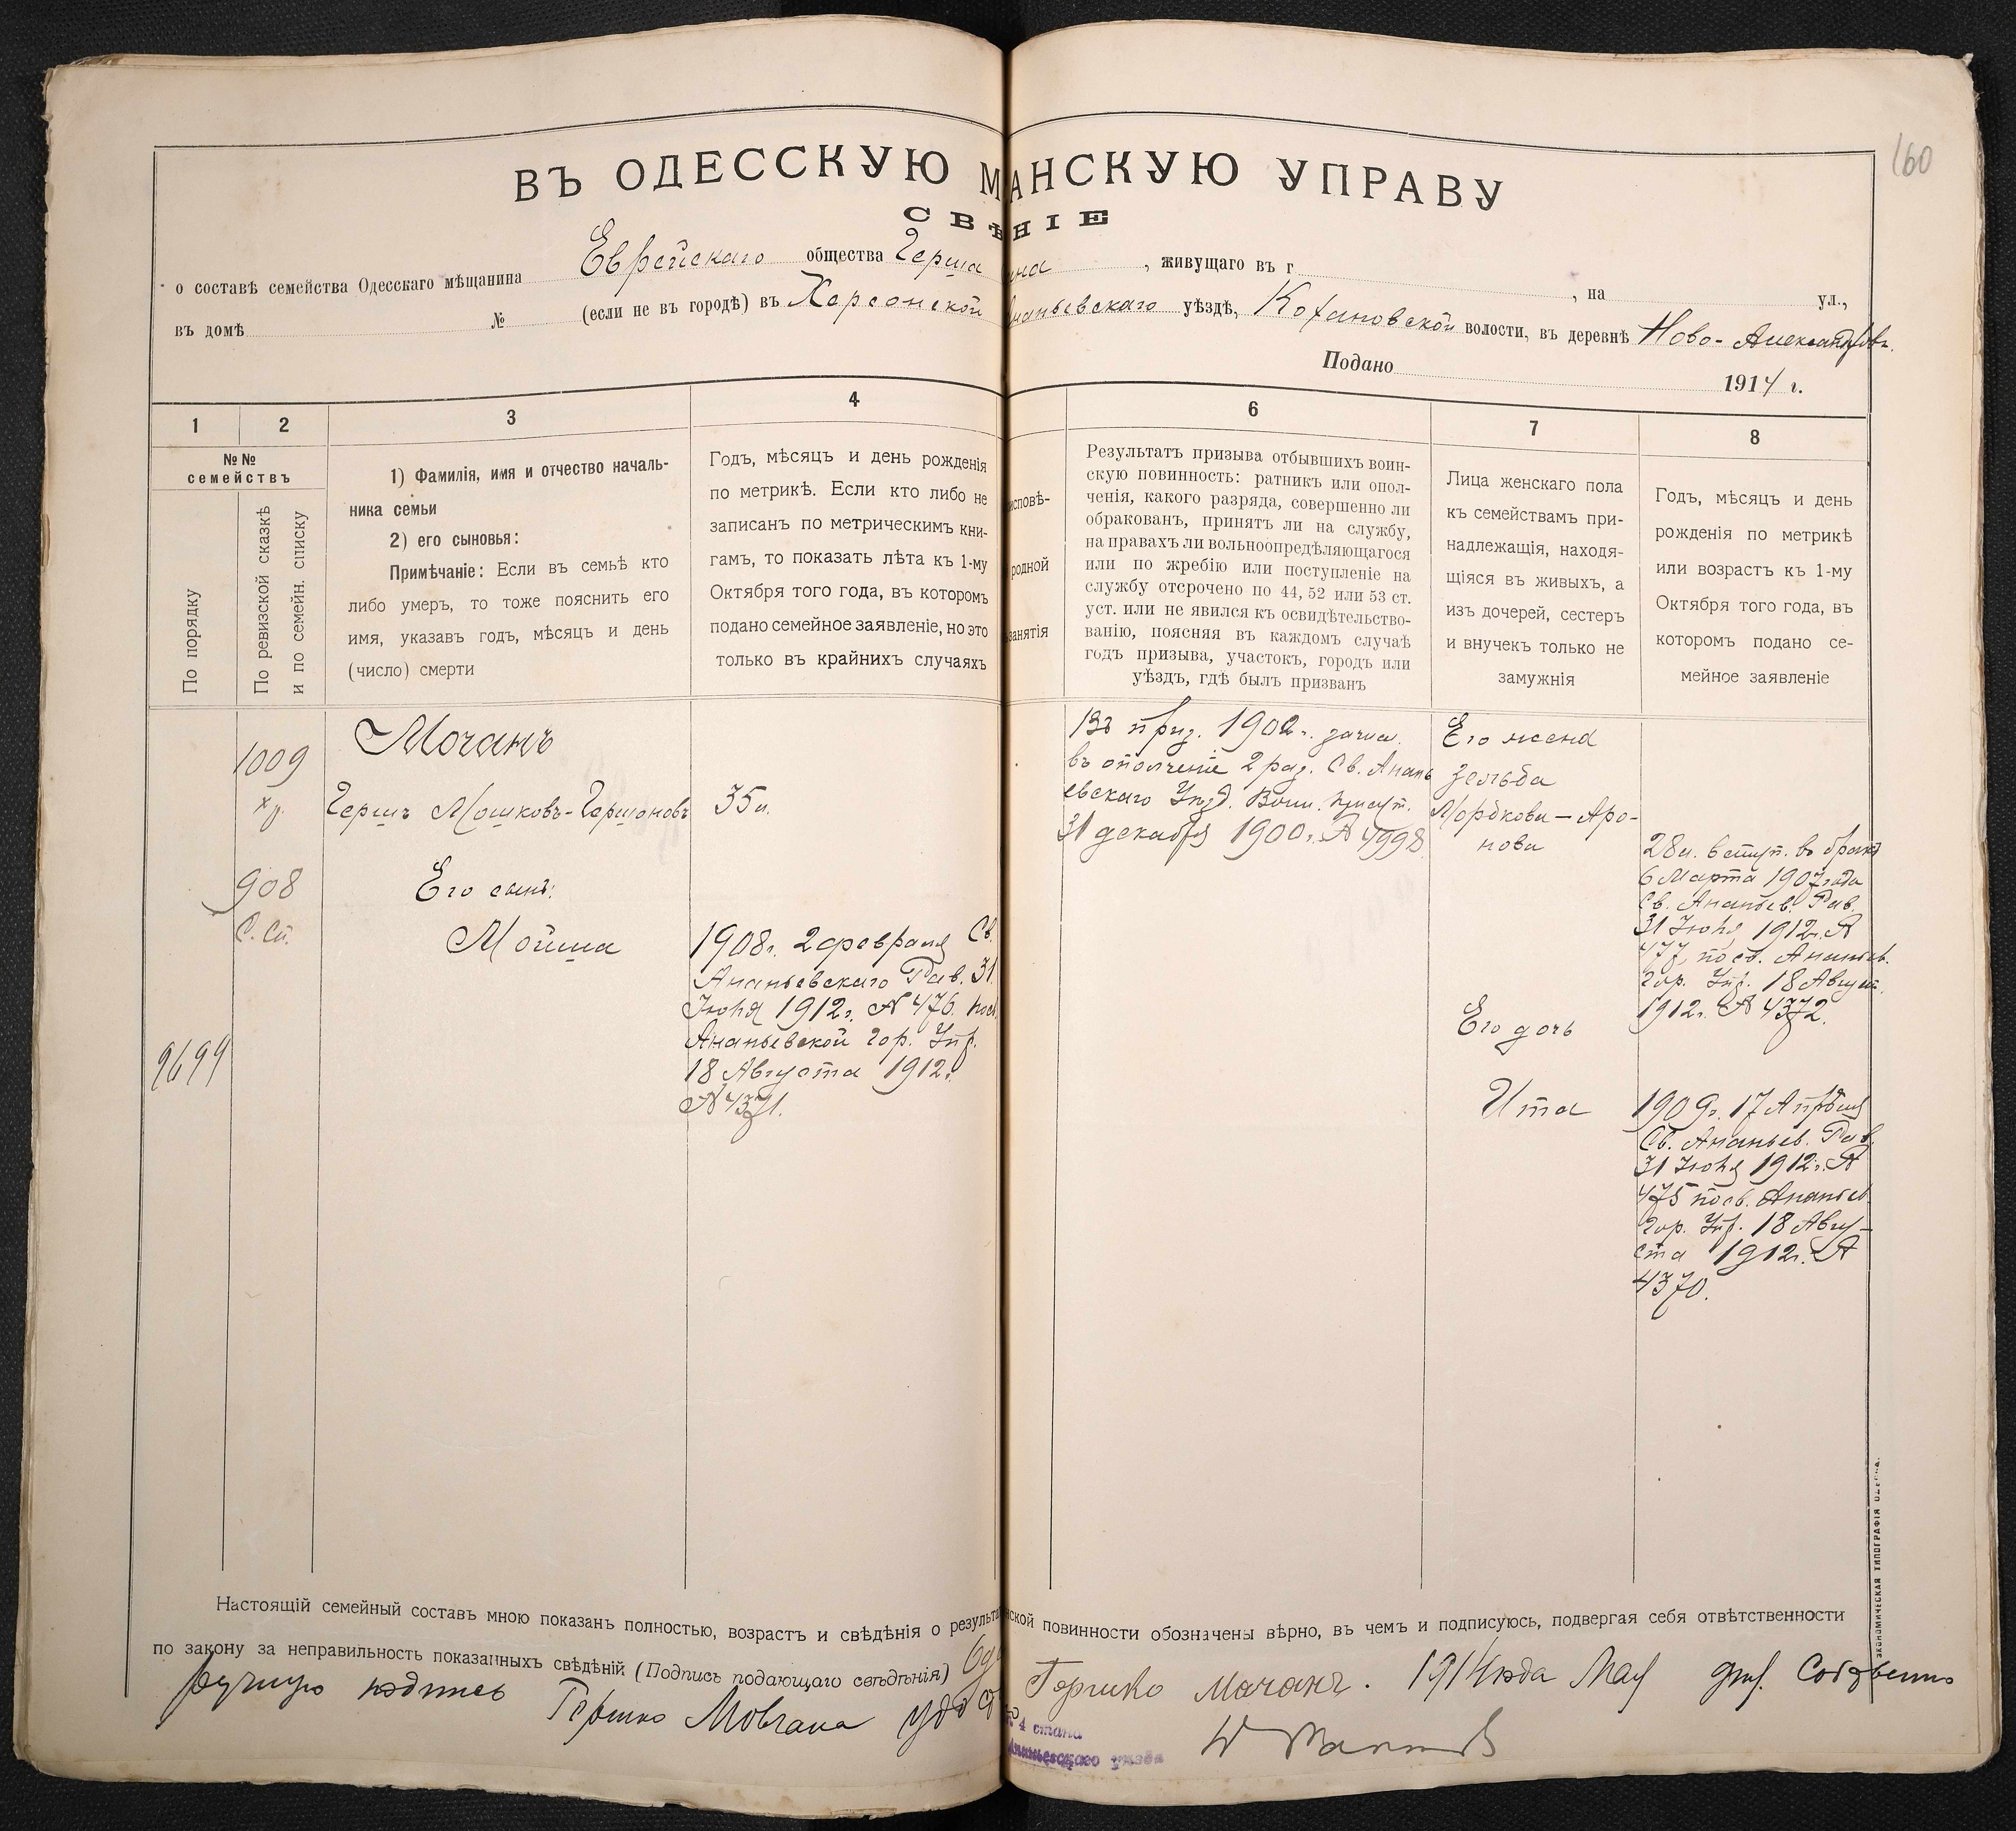 160
ВЪ ОДЕССКУЮ М АНСКУЮ УПРАВУ
СВѢ НІЕ
о составѣ семейства Одесскаго мѣщанина Еврейскаго общества Герша на , живущаго въ г , на ул.,
въ домѣ № (если не въ городѣ) въ Херсонской наньевскаго уѣздѣ, Кохановской волости, въ деревнѣ Ново-Александровк.
Подано 1914 г.
1 2 3 4 6 7 8
№№ семействъ
По порядку
По ревизской сказкѣ
и по семейн. списку
1) Фамилія, имя и отчество началь-
ника семьи
2) его сыновья:
Примѣчаніе: Если въ семьѣ кто
либо умеръ, то тоже пояснить его
имя, указавъ годъ, мѣсяцъ и день
(число) смерти
Годъ, мѣсяцъ и день рожденія
по метрикѣ. Если кто либо не
записанъ по метрическимъ кни-
гамъ, то показать лѣта къ 1-му
Октября того года, въ которомъ
подано семейное заявленіе, но это
только въ крайнихъ случаяхъ
исповѣ-
родной
занятія
Результатъ призыва отбывшихъ воин-
скую повинность: ратникъ или опол-
ченія, какого разряда, совершенно ли
обракованъ, принятъ ли на службу,
на правахъ ли вольноопредѣляющагося
или по жребію или поступленіе на
службу отсрочено по 44, 52 или 53 ст.
уст. или не явился къ освидѣтельство-
ванію, поясняя въ каждомъ случаѣ
годъ призыва, участокъ, городъ или
уѣздъ, гдѣ былъ призванъ
Лица женскаго пола
къ семействамъ при-
надлежащія, находя-
щіяся въ живыхъ, а
изъ дочерей, сестеръ
и внучекъ только не
замужнія
Годъ, мѣсяцъ и день
рожденія по метрикѣ
или возрастъ къ 1-му
Октября того года, въ
которомъ подано се-
мейное заявленіе
1009
908
С. Сп.
9699
Мочанъ
Гершъ Мошковъ-Гершоновъ
35 л.
Его сынъ:
Мойша
1908 г. 2 февраля Св.
Ананьевскаго Рав. 31
Іюля 1912 г. № 476. посв.
Ананьевской Гор. Упр.
18 Августа 1912 г.
№ 4371.
Въ приз. 1900 г. зачисл.
въ ополченіе 2 раз. Св. Анань
евскаго Уѣзд. Воин. Присут.
31 декабря 1900 г. № 4998
Его жена
Зельба
Мордкова-Аро-
нова
28 л. вступ. въ бракъ
6 Марта 1907 года
Св. Ананьев. Рав.
31 Іюля 1912 г. №
477, посв. Ананьев.
Гор. Упр. 18 Август.
1912 г. № 4372.
Его дочь
Ита
1909 г. 17 Апрѣля
Св. Ананьев. Рав.
31 Іюля 1912 г. №
475 посв. Ананьев.
Гор. Упр. 18 Авгу-
ста 1912 г. №
4370.
Настоящій семейный составъ мною показанъ полностью, возрастъ и свѣдѣнія о результа нской повинности обозначены вѣрно, въ чемъ и подписуюсь, подвергая себя отвѣтственности
по закону за неправильность показанныхъ свѣдѣній (Подпись подающаго свѣдѣнія) Гершко Мочанъ. 1914 года Мая дня. Собственно
ручную подпись Гершко Мовчана удо
4 стана
Ананьевскаго уѣзда
ЭКОНОМИЧЕСКАЯ ТИПОГРАФІЯ ОДЕССА.